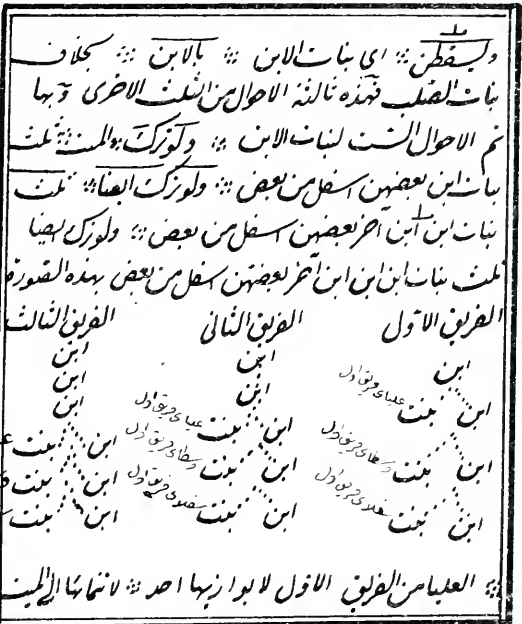 ويسقطن ∴ اى بنات الابن ∴ بالابن ∴ بخلاف
بنات الصلب فهذه ثالثة الاحوال من الثلث الاخرى وبها
تم الاحوال الست لبنات الابن ∴ ولو ترك ∴ الميت ∴ ثلث
بنات ابن بعضهن اسفل من بعض ∴ ولو ترك ايضا ∴ ثلث
بنات ابن ابن آخر بعضهن اسفل من بعض ∴ ولو ترك ايضا
ثلث بنات ابن ابن ابن آخر بعضهن اسفل من بعض بهذه الصورة
الفريق الاول الفريق الثانى الفريق الثالث
ابن ابن ابن
ابن بنت علياى فريق اول ابن ابن
ابن بنت وسطاى فريق اول ابن بنت علياى فريق اول ابن
ابن بنت سفلاى فريق اول ابن بنت وسطاى فريق اول ابن بنت
ابن بنت سفلاى فريق اول ابن بنت
ابن بنت
∴ العليا من الفريق الاول لا يوازيها احد ∴ لانتمائها الى الميت